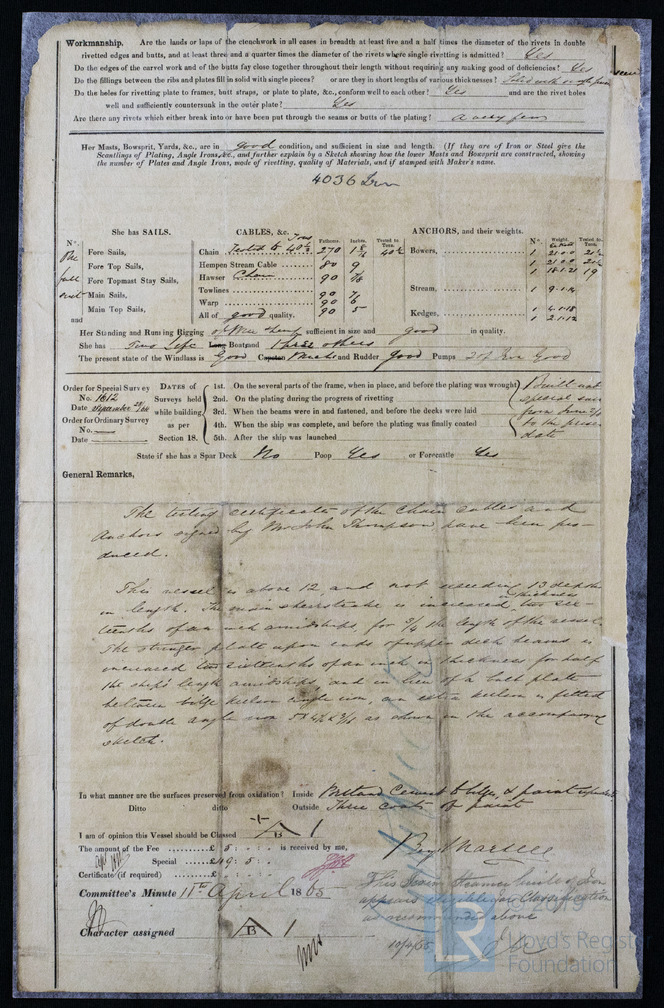 Workmanship. Are the lands or laps of the clenchwork in all cases in breadth at least five and a half times the diameter of the rivets in double
rivetted edges and butts, and at least three and a quarter times the diameter of the rivets where single rivetting is admitted? Yes
Do the edges of the carvel work and of the butts fay close together throughout their length without requiring any making good of deficiencies? Yes
Do the fillings between the ribs and plates fill in solid with single pieces? or are they in short lengths of various thicknesses? Filled with single pieces
Do the holes for rivetting plate to frames, butt straps, or plate to plate, &c., conform well to each other? Yes and are the rivet holes
well and sufficiently countersunk in the outer plate? Yes
Are there any rivets which either break into or have been put through the seams or butts of the plating? a very few
Her Masts, Bowsprit, Yards, &c., are in good condition, and sufficient in size and length. (If they are of Iron or Steel give the
Scantlings of Plating, Angle Irons, &c., and further explain by a Sketch showing how the lower Masts and Bowsprit are constructed, showing
the number of Plates and Angle Irons, mode of rivetting, quality of Materials, and if stamped with Maker's name.
4036 Iron
She has SAILS. CABLES, &c. ANCHORS, and their weights.
N°. Fathoms. Inches. Tested to Tons. N°. Weight. Tested to Tons.
Fore Sails, Chain Tested to 40½ Tons 270 40½ Bowers, 1 21.0.0
Fore Top Sails, Hempen Stream Cable 80 9 1 21.0.0
Fore Topmast Stay Sails, Hawser Chain 90 7/8 1 18.1.21 19
Main Sails, Towlines 90 Stream, 1
Main Top Sails, Warp 90 6 Kedges, 1
and All of good quality. 90 5 1 2.1.12
Her Standing and Running Rigging of Wire Hemp sufficient in size and good in quality.
She has Two Life Long Boats and three others
The present state of the Windlass is Good Capstan and Rudder Good Pumps 2 of Iron Good
Order for Special Survey
No. 1612
Date September
Order for Ordinary Survey
No.
Date
DATES of
Surveys held
while building
as per
Section 18.
1st. On the several parts of the frame, when in place, and before the plating was wrought
2nd. On the plating during the progress of rivetting
3rd. When the beams were in and fastened, and before the decks were laid
4th. When the ship was complete, and before the plating was finally coated
5th. After the ship was launched
Built under
special survey
from
to the present
date
State if she has a Spar Deck No Poop Yes or Forecastle Yes
General Remarks,
The testing certificates of the Chain Cables and
Anchors signed by Mr John Thompson have been pro-
duced.
This vessel is above 12 and not exceeding 13 depths
in length. The main sheerstrake is increased in thickness two six-
teenths of an inch amidships, for 3/4 the length of the vessel.
The stringer plate upon ends of upper deck beams is
increased two sixteenths of an inch in thickness for half
the ship's length amidships, and in lieu of a bulb plate
between bilge keelson angle iron, an extra keelson is fitted
of double angle iron as shown in the accompanying
sketch.
In what manner are the surfaces preserved from oxidation? Inside Portland Cement to bilges, & paint upwards
Ditto ditto Outside Three coats of paint
I am of opinion this Vessel should be Classed A B 1
The amount of the Fee £ 5 : : is received by me,
Special £ 49 : 5 :
Certificate (if required) £ : :
Benj Martell
Committee's Minute 11th April 1865
This Screw Steamer built of Iron
appears eligible for Classification
as recommended above
10/4/65
Character assigned A B 1
© 2019
LR
Lloyd's Register
Foundation